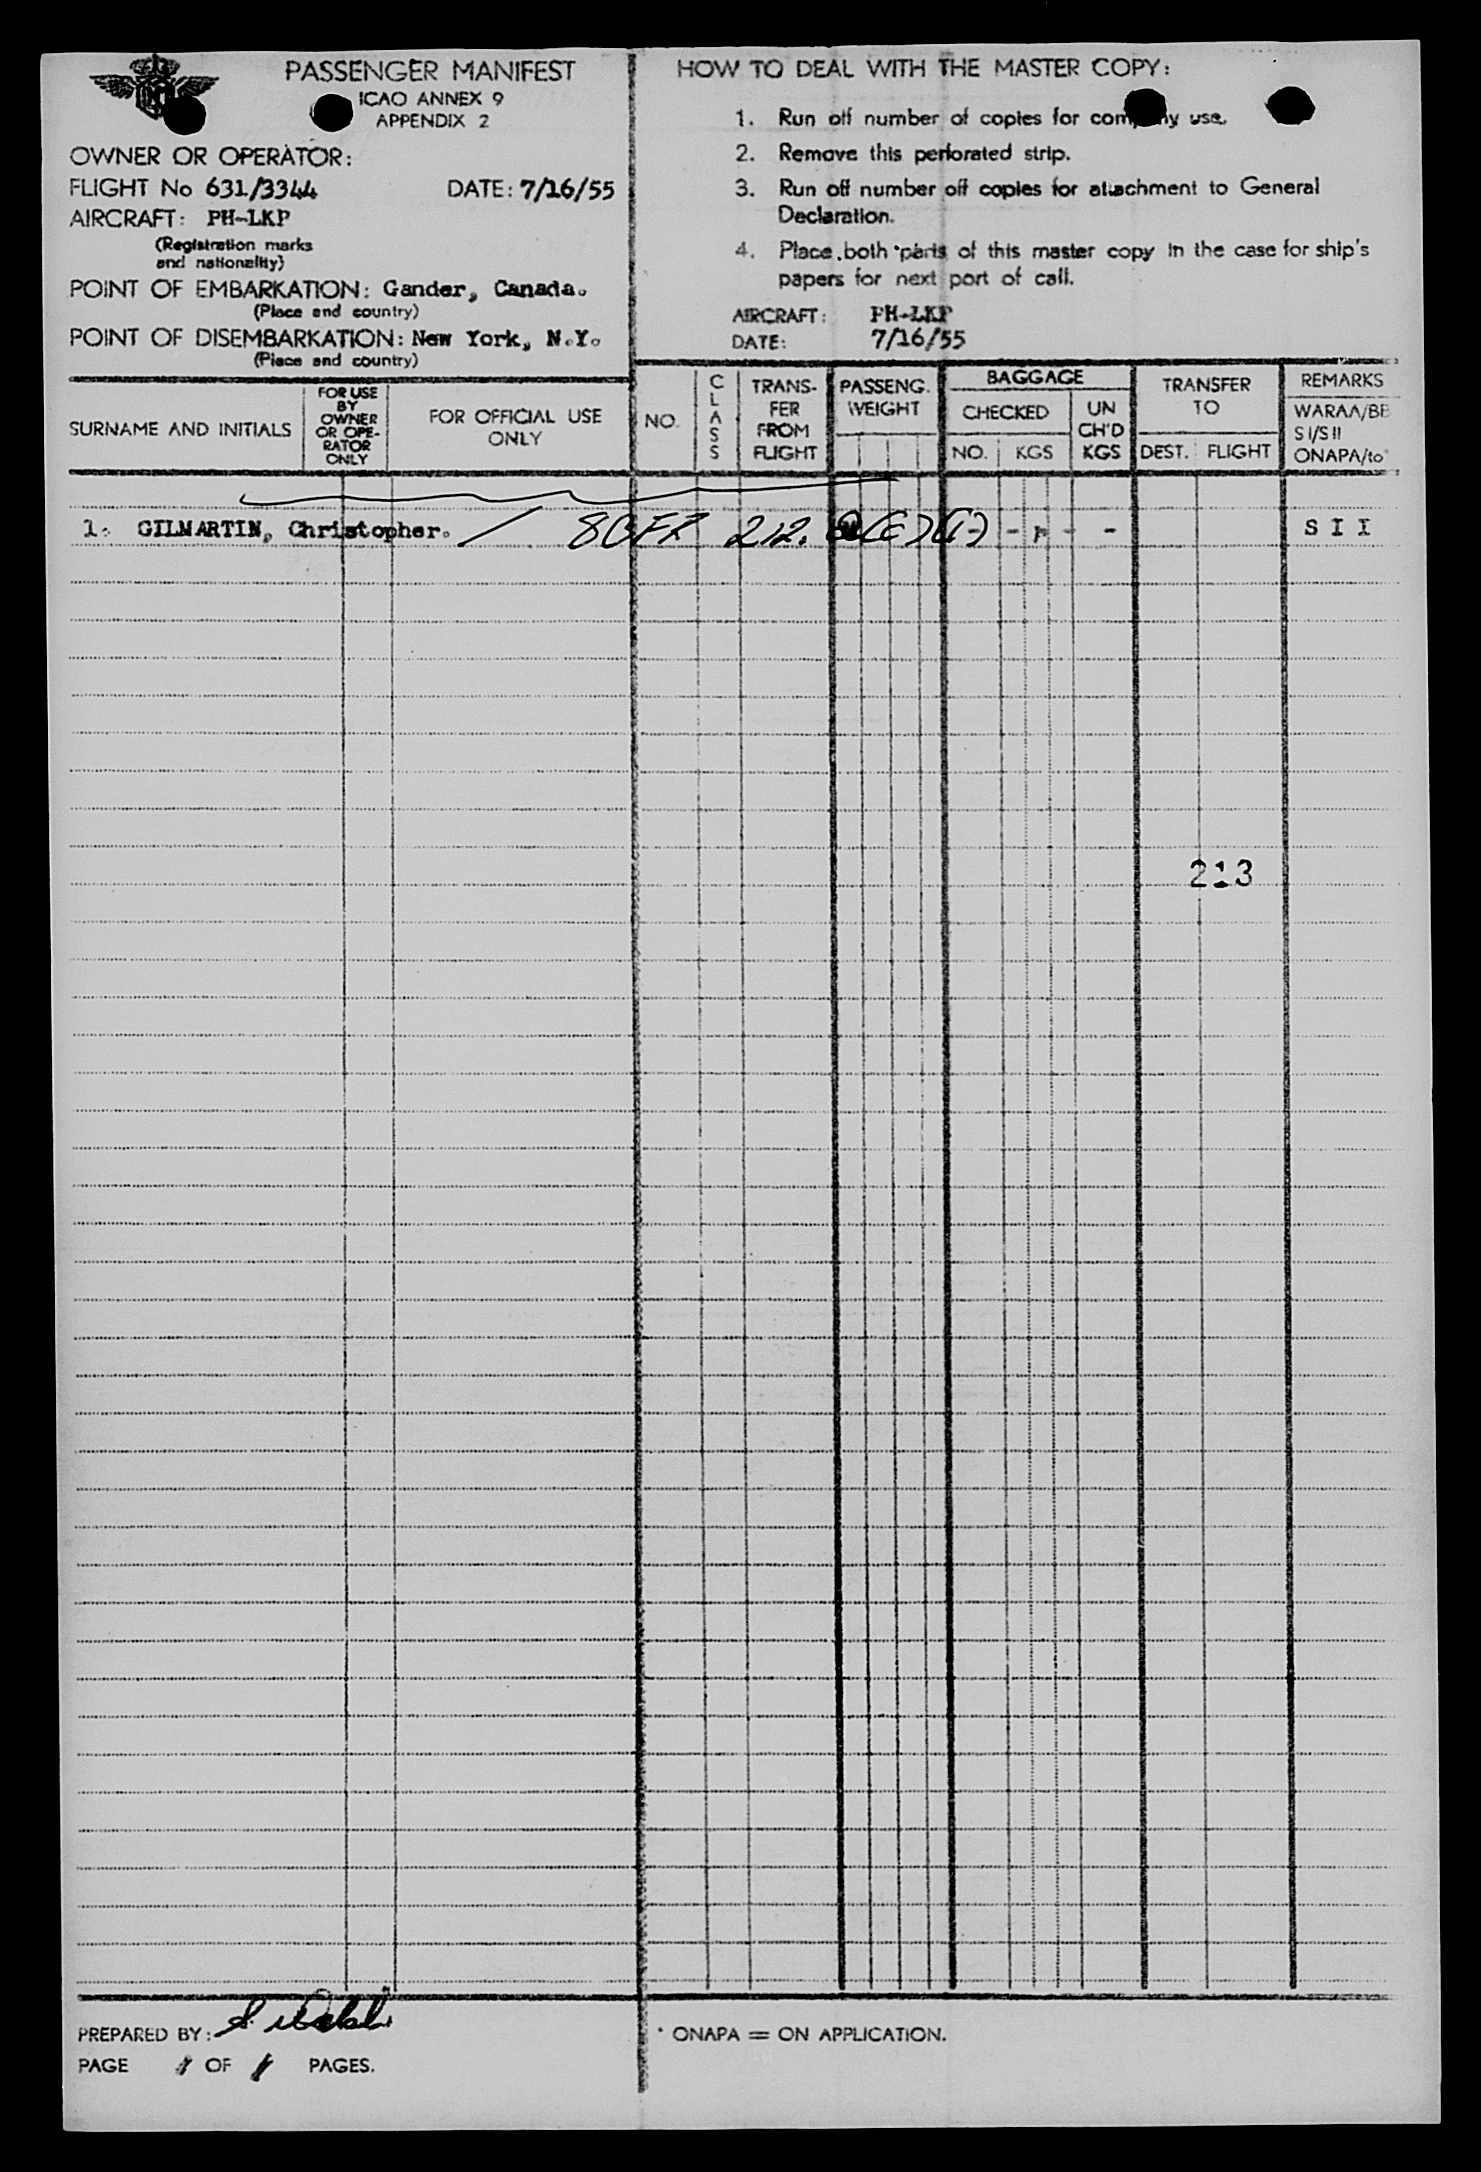 PASSENGER MANIFEST
ICAO ANNEX 9
APPENDIX 2
OWNER OR OPERATOR:
FLIGHT No 631/3344 DATE: 7/16/55
AIRCRAFT: PH-LKP
(Registration marks
and nationality)
POINT OF EMBARKATION: Gander, Canada.
(Place and country)
POINT OF DISEMBARKATION: New York, N.Y.
(Place and country)
HOW TO DEAL WITH THE MASTER COPY:
1. Run off number of copies for company use.
2. Remove this perforated strip.
3. Run off number off copies for attachment to General
Declaration.
4. Place both parts of this master copy in the case for ship's
papers for next port of call.
AIRCRAFT: PH-LKP
DATE: 7/16/55
SURNAME AND INITIALS
FOR USE
BY
OWNER
OR OPE-
RATOR
ONLY
FOR OFFICIAL USE
ONLY
NO.
CLASS
TRANS-
FER
FROM
FLIGHT
PASSENG.
WEIGHT
BAGGAGE
CHECKED
NO. KGS
UN
CH'D
KGS
TRANSFER
TO
DEST. FLIGHT
REMARKS
WARAA/BE
S I/S II
ONAPA/to*
1. GILMARTIN, Christopher. / 8CFR 212. (E)(1) - - - - S I I
213
PREPARED BY:
PAGE 1 OF 1 PAGES.
* ONAPA = ON APPLICATION.